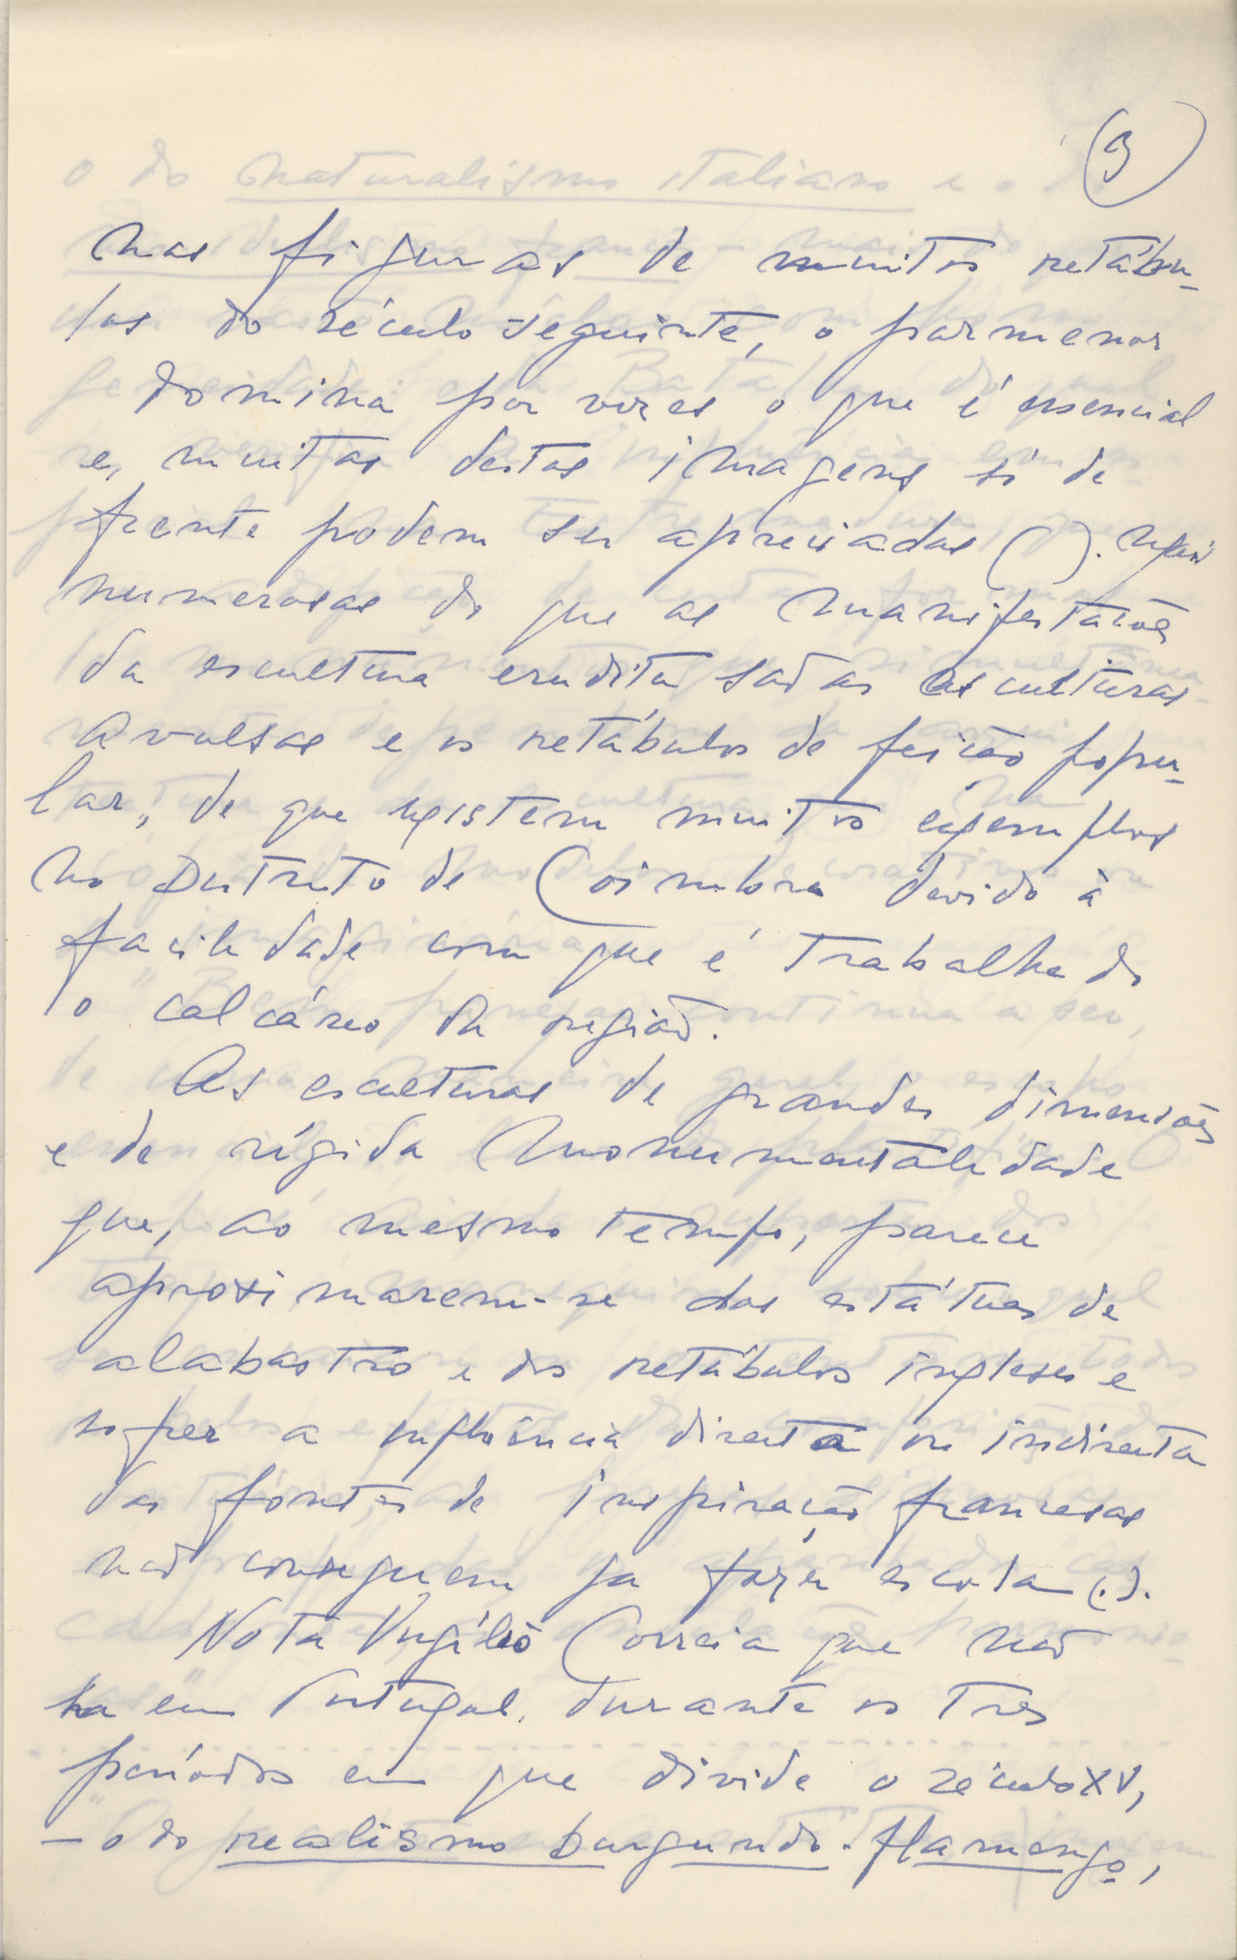 9
nas figuras de muitos retábu-
los do século seguinte, o pormenor
domina por vezes o que é essencial
e, muitas destas imagens só de
frente podem ser apreciadas ( ). Mais
numerosas do que as manifestações
da escultura erudita são as esculturas
avulsas e os retábulos de feição popu-
lar, de que existem muitos exemplos
no Distrito de Coimbra devido à
facilidade com que é trabalhado
o calcáreo da região.
As esculturas de grandes dimensões
e de rígida monumentalidade
que, ao mesmo tempo, parece
aproximarem-se das estátuas de
alabastro e dos retábulos ingleses e
sofrer a influência directa ou indirecta
das fontes de inspiração francesas
não conseguem ja fazer escola (.).
Nota Vergílio Correia que não
ha em Portugal, durante os tres
períodos em que divide o século XV,
— o do realismo burgundo-flamengo,